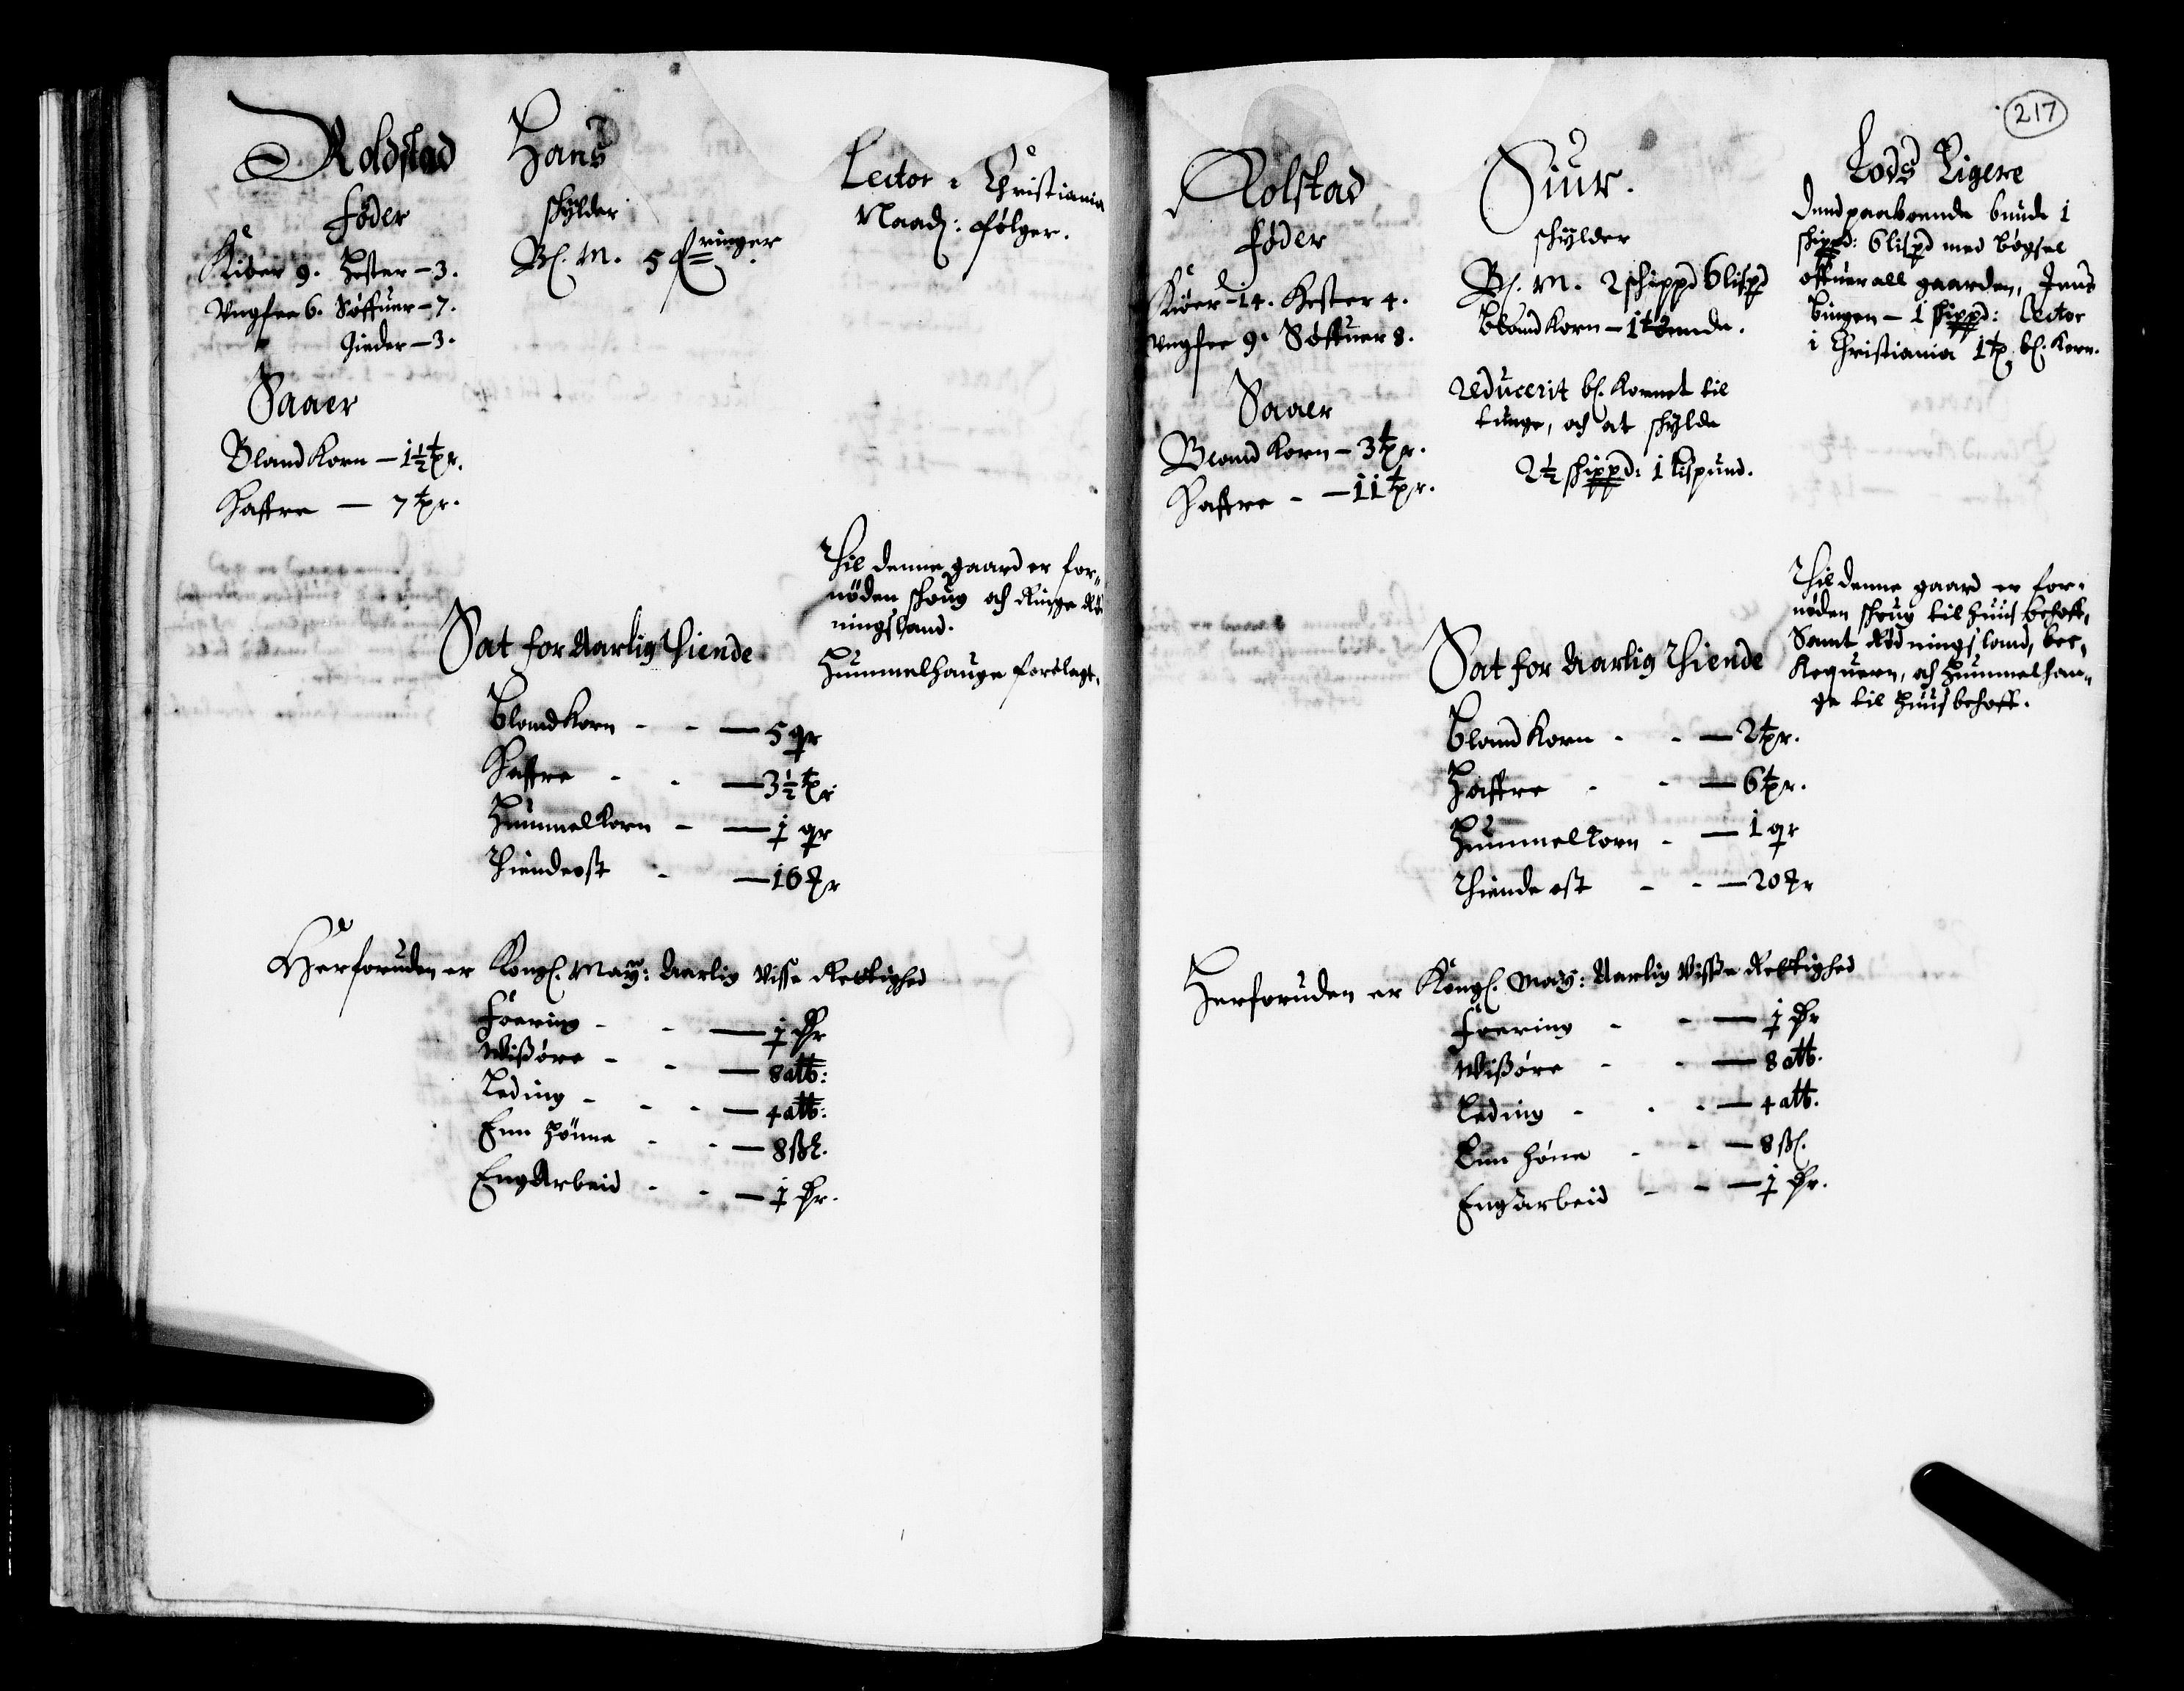 Roldstad
Føder
Kiöer 9. Hester - 3.
Ungfee 6. Søffuer - 7.
Gieder - 3.
Saaer
Bland Korn - 1½ tr.
Haffre - 7 tr.
Hans
schylder
Bl. M. 5 fringer
Lector i Christiania
Naad: følger.
Thil denne gaard er for-
nöden schoug och Ringe Röd
ningsland.
Hummelhauge forelagt.
Sat for Aarlig Thiende
Blandkorn - - 5 qr
Haffre - - 3½ tr
Hummelkorn - 1 qr
Thiendeost - 16 r
Herforuden er Kongl. May: Aarlig Visse Rettighed
Foering - - 1
Wisßøre - - 8 alb:
Leding - - - 4 alb:
Enn Hönne - - 8 ßl.
EngArbeid - - 1
217
Rolstad
Føder
Kiöer - 14. Hester 4.
Ungfee 9. Søffuer 8.
Saaer
Bland Korn - 3 tr.
Haffre - - 11 tr.
Siur.
schylder
Bl. M. 2 schippd 6 lispd
Bland Korn - 1 tønde.
reducerit bl. Kornet til
tunge, och at schylde
2½ schippd: 1 lispund.
Lods Eigere
Dend paaboende bunde 1
schippd: 6 lispd med bögsel
offuer all gaarden, Jens
Bingen - 1 schippd: Lector
i Christiania 1 t bl. Korn.
Thil denne gaard er for-
nöden schoug til Huus behoff,
Samt Rödningsland, bec-
Kequern, och Hummelhau-
ge til Huus behoff.
Sat for Aarlig Thiende
Bland Korn - - 2 tr.
Haffre - - 6 tr.
Hummelkorn - 1 qr
Thiende ost - - 20 r
Herforuden er Kongl. May: Aarlig Visße Rettighed
Foering - - 1
Wisßøre - - 8 alb.
Leding - - - 4 alb.
Enn Høne - - 8 ßl.
Engarbeid - - 1